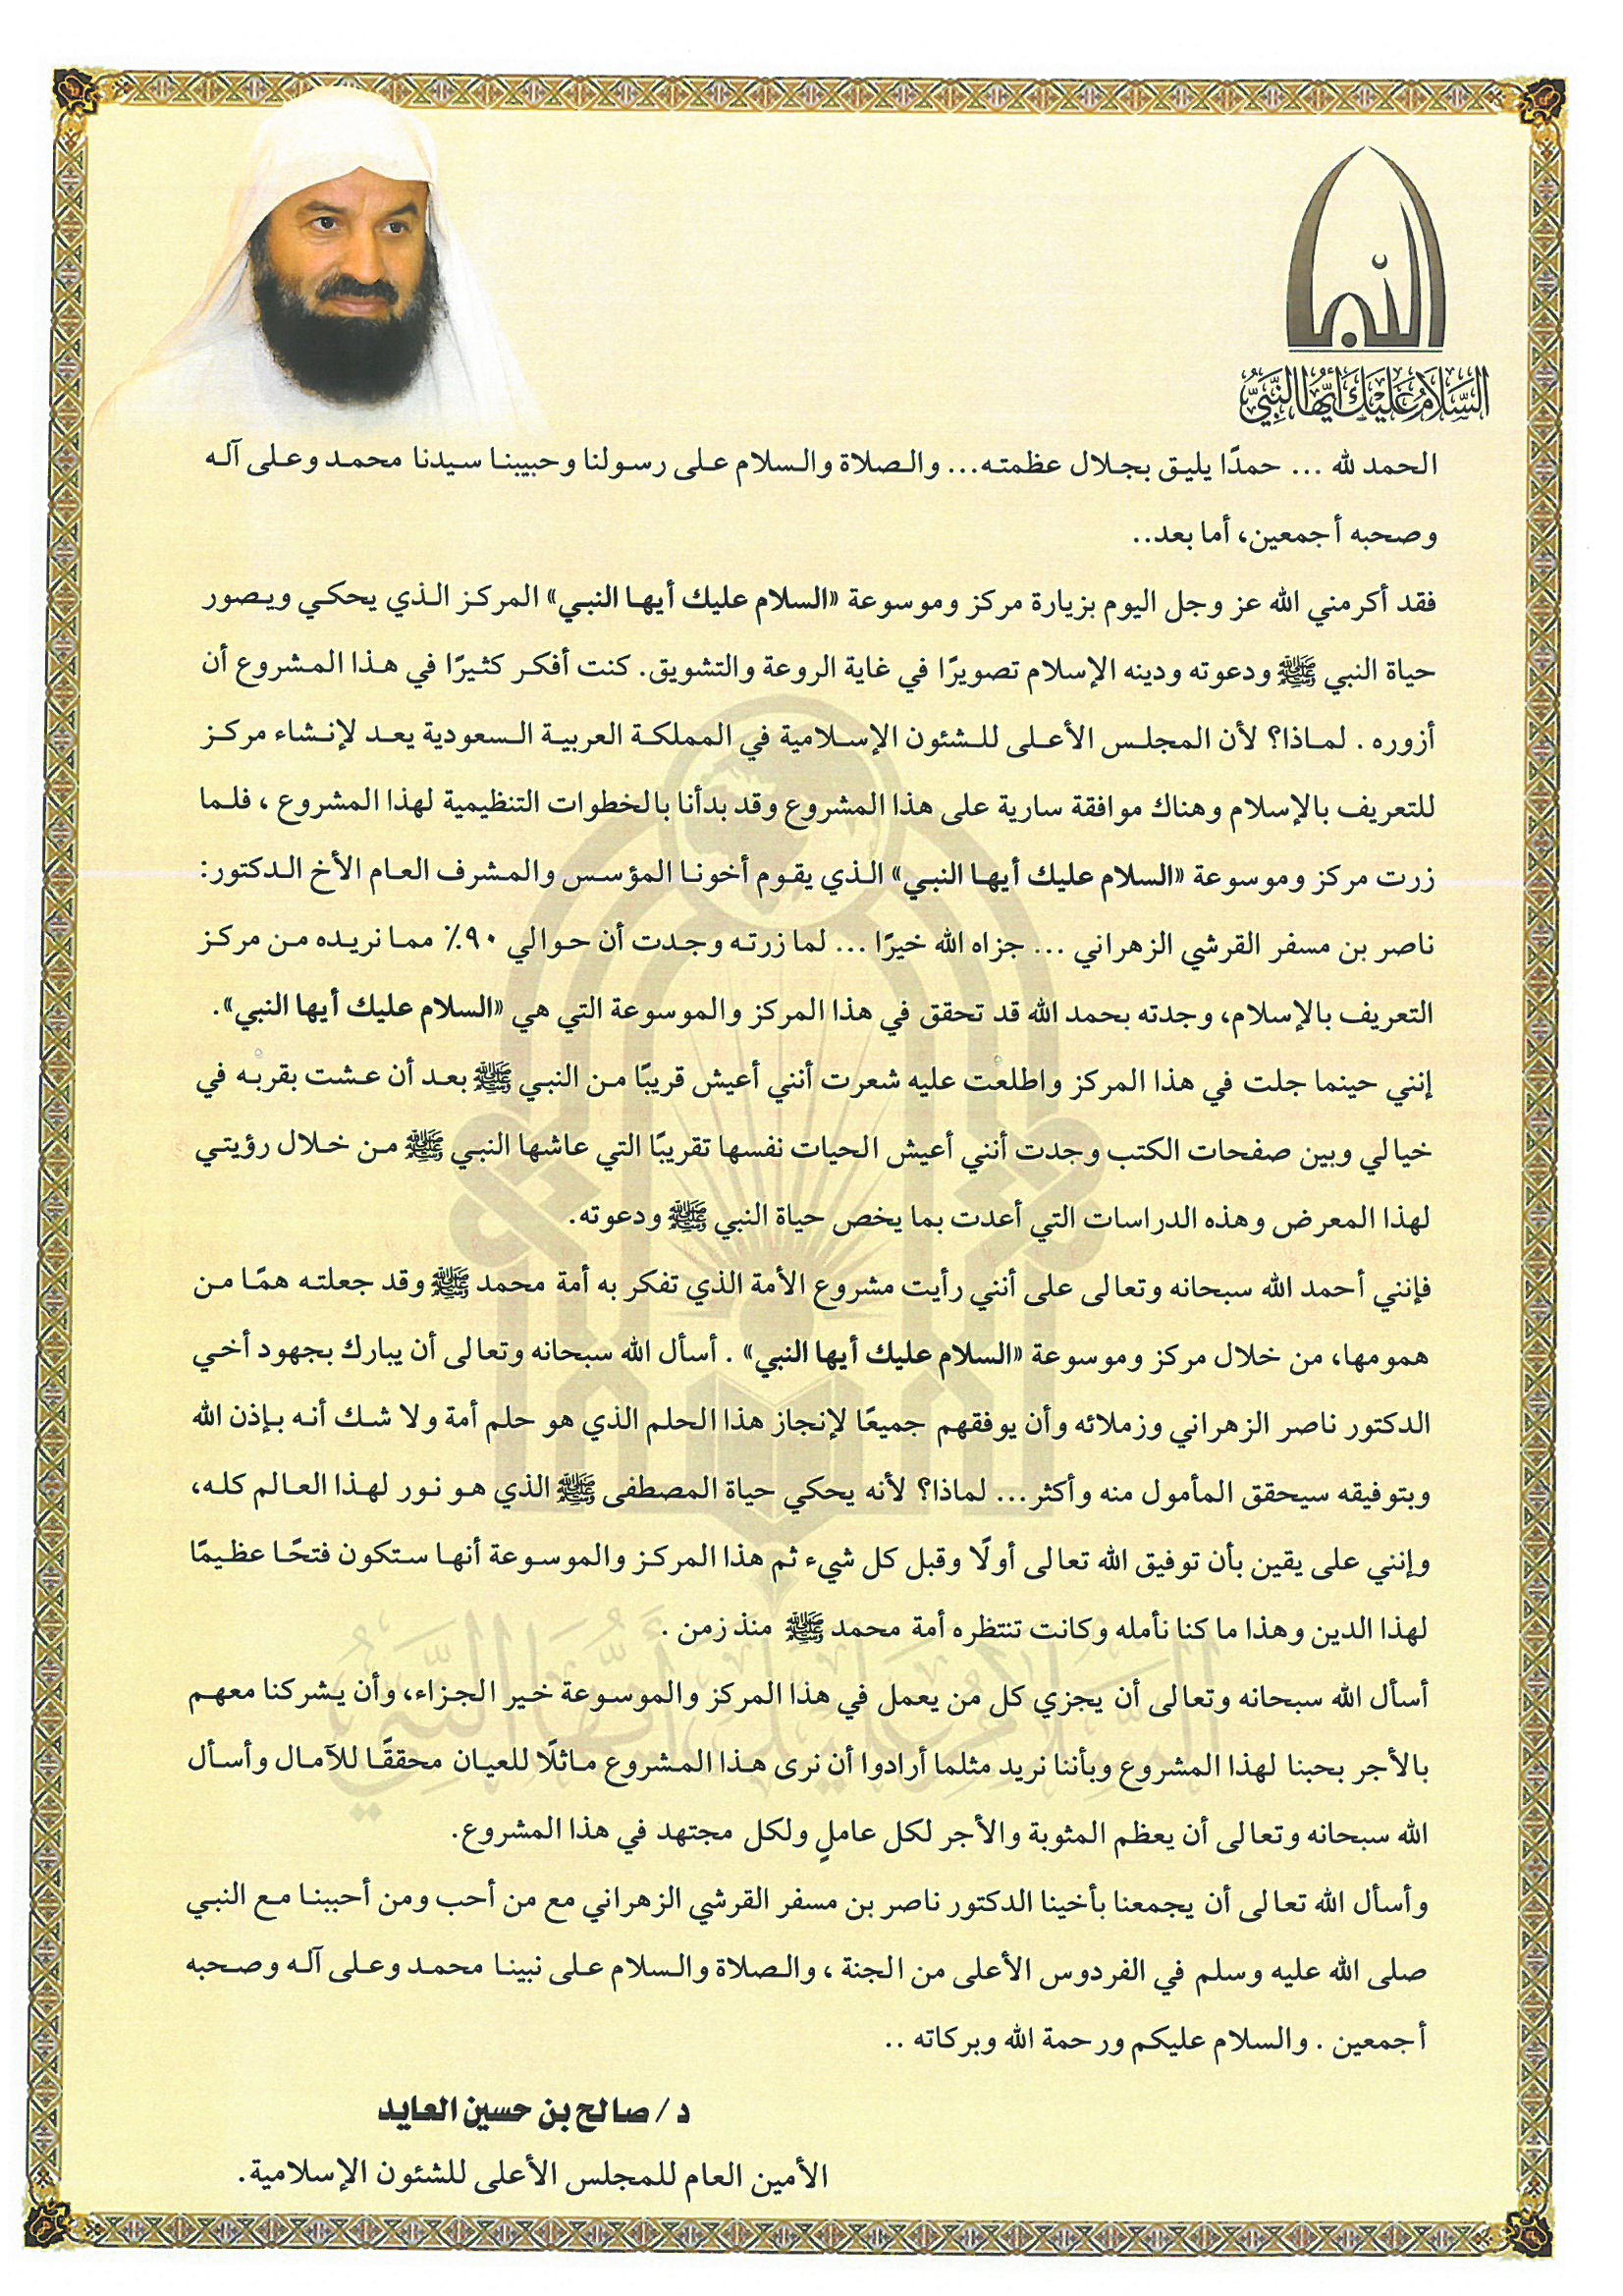 السَّلَامُ عَلَيْكَ أَيُّهَا النَّبِيُّ
الحمد لله ... حمدًا يليق بجلال عظمته... والصلاة والسلام على رسولنا وحبيبنا سيدنا محمد وعلى آله
وصحبه أجمعين، أما بعد..
فقد أكرمني الله عز وجل اليوم بزيارة مركز وموسوعة «السلام عليك أيها النبي» المركز الذي يحكي ويصور
حياة النبي ﷺ ودعوته ودينه الإسلام تصويرًا في غاية الروعة والتشويق. كنت أفكر كثيرًا في هذا المشروع أن
أزوره . لماذا؟ لأن المجلس الأعلى للشئون الإسلامية في المملكة العربية السعودية يعد لإنشاء مركز
للتعريف بالإسلام وهناك موافقة سارية على هذا المشروع وقد بدأنا بالخطوات التنظيمية لهذا المشروع ، فلما
زرت مركز وموسوعة «السلام عليك أيها النبي» الذي يقوم أخونا المؤسس والمشرف العام الأخ الدكتور:
ناصر بن مسفر القرشي الزهراني ... جزاه الله خيرًا ... لما زرته وجدت أن حوالي ٩٠٪ مما نريده من مركز
التعريف بالإسلام، وجدته بحمد الله قد تحقق في هذا المركز والموسوعة التي هي «السلام عليك أيها النبي».
إنني حينما جلت في هذا المركز واطلعت عليه شعرت أنني أعيش قريبًا من النبي ﷺ بعد أن عشت بقربه في
خيالي وبين صفحات الكتب وجدت أنني أعيش الحيات نفسها تقريبًا التي عاشها النبي ﷺ من خلال رؤيتي
لهذا المعرض وهذه الدراسات التي أعدت بما يخص حياة النبي ﷺ ودعوته.
فإنني أحمد الله سبحانه وتعالى على أنني رأيت مشروع الأمة الذي تفكر به أمة محمد ﷺ وقد جعلته همًا من
همومها، من خلال مركز وموسوعة «السلام عليك أيها النبي» . أسأل الله سبحانه وتعالى أن يبارك بجهود أخي
الدكتور ناصر الزهراني وزملائه وأن يوفقهم جميعًا لإنجاز هذا الحلم الذي هو حلم أمة ولا شك أنه بإذن الله
وبتوفيقه سيحقق المأمول منه وأكثر... لماذا؟ لأنه يحكي حياة المصطفى ﷺ الذي هو نور لهذا العالم كله،
وإنني على يقين بأن توفيق الله تعالى أولًا وقبل كل شيء ثم هذا المركز والموسوعة أنها ستكون فتحًا عظيمًا
لهذا الدين وهذا ما كنا نأمله وكانت تنتظره أمة محمد ﷺ منذ زمن .
أسأل الله سبحانه وتعالى أن يجزي كل من يعمل في هذا المركز والموسوعة خير الجزاء، وأن يشركنا معهم
بالأجر بحبنا لهذا المشروع وبأننا نريد مثلما أرادوا أن نرى هذا المشروع ماثلًا للعيان محققًا للآمال وأسأل
الله سبحانه وتعالى أن يعظم المثوبة والأجر لكل عاملٍ ولكل مجتهد في هذا المشروع.
وأسأل الله تعالى أن يجمعنا بأخينا الدكتور ناصر بن مسفر القرشي الزهراني مع من أحب ومن أحببنا مع النبي
صلى الله عليه وسلم في الفردوس الأعلى من الجنة ، والصلاة والسلام على نبينا محمد وعلى آله وصحبه
أجمعين . والسلام عليكم ورحمة الله وبركاته ..
د / صالح بن حسين العايد
الأمين العام للمجلس الأعلى للشئون الإسلامية.